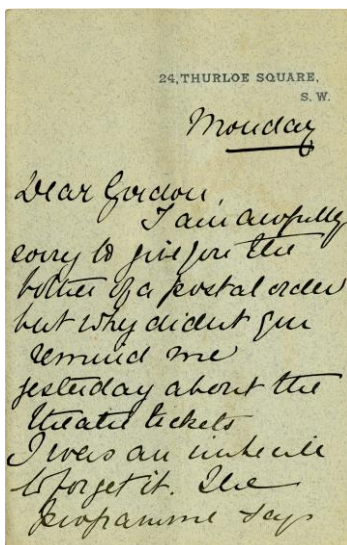 24, THURLOE SQUARE,
S. W.
Monday
Dear Gordon,
I am awfully
sorry to give you the
bother of a postal order
but why didnt you
remind me
yesterday about the
theatre tickets
I was an imbecile
to forget it. The
programme says